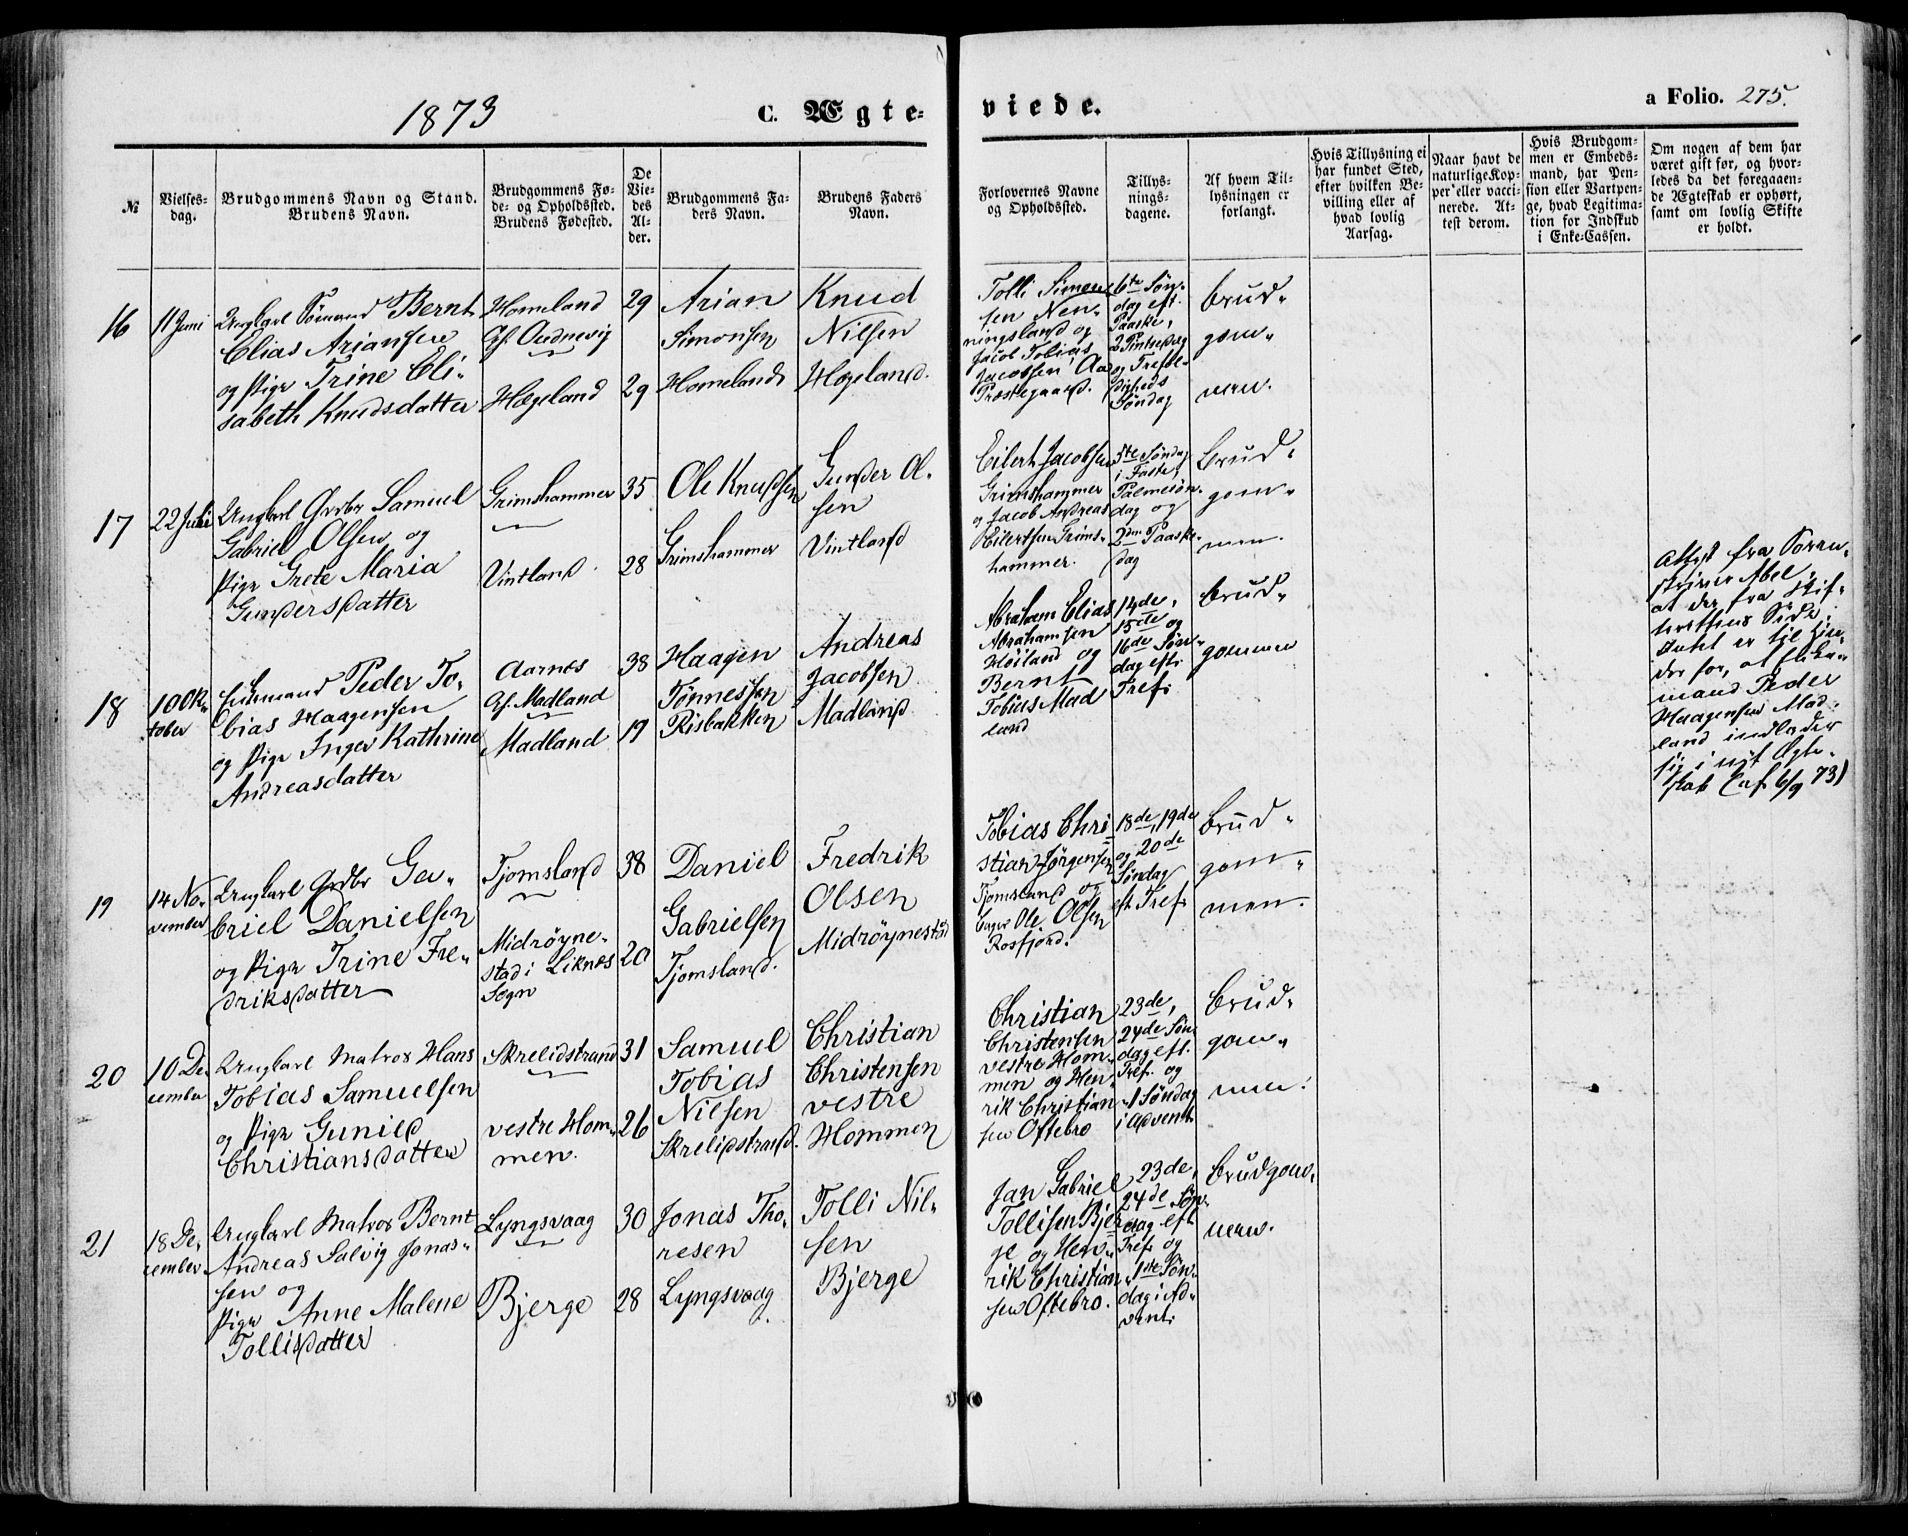 1873
C. Ægte-
viede.
a Folio. 275.
№
Vielses-
dag.
Brudgommens Navn og Stand.
Brudens Navn.
Brudgommens Fø-
de- og Opholdssted.
Brudens Fødested.
De
Vie-
des
Al-
der.
Brudgommens Fa-
ders Navn.
Brudens Faders
Navn.
Forlovernes Navne
og Opholdssted.
Tillys-
nings-
dagene.
Af hvem Til-
lysningen er
forlangt.
Hvis Tillysning ei
har fundet Sted,
efter hvilken Be-
villing eller af
hvad lovlig
Aarsag.
Naar havt de
naturlige Kop-
per eller vacci-
nerede. At-
test derom.
Hvis Brudgom-
men er Embeds-
mand, har Pen-
sion eller Vartpen-
ge, hvad Legitima-
tion for Indskud
i Enke-Cassen.
Om nogen af dem har
været gift før, og hvor-
ledes da det foregaaen-
de Ægteskab er ophørt,
samt om lovlig Skifte
er holdt.
16
11 Juni
Ungkarl Sømand Bernt
Elias Ariansen
og Pige Trine Eli-
sabeth Knudsdatter
Homeland
Gf. Audnevig
Hægeland
29
29
Arian
Simonsen
Homeland
Knud
Nilsen
Hægeland.
Tolli Simon
sen Nen-
ningsland og
Jacob Tobias
Jacobsen Aa
Præstegaard.
6te Søn-
dag eft.
Paaske,
2 Pintsedag
og Trefol-
digheds
Søndag
brud-
gom-
men.
17
22 Juli
Ungkarl Grdbr Samuel
Gabriel Olsen og
Pige Grete Maria
Gundersdatter
Grimshammer
Vintland
35
28
Ole Knudsen
Grimshammer
Gunder Ol-
sen
Vintland
Eilert Jacobsen
Grimshammer
og Jacob Andreas
Eilertsen Grims-
hammer.
5te Søndag
i Faste,
Palmesøn-
dag og
2den Paaske-
dag
brud-
gom-
men.
18
10 Ok-
tober
Enkemand Peder To-
bias Haagensen
og Pige Inger Kathrine
Andreasdatter
Aarnes
Gf. Madland
Madland
38
19
Haagen
Tønnessen
Risbakken
Andreas
Jacobsen
Madland
Abraham Elias
Abrahamsen
Høiland og
Bernt
Tobias Mad
land
14de,
15de og
16de Søn-
dag eft.
Tref.
brud-
gommen
Attest fra Soren-
skriver Abel,
at der fra Skif-
terettens Side
Intet er til Hin-
der for, at Enke-
mand Peder
Haagensen Mad-
land indlader
sig i nyt Ægte-
skab (af 6/9 73)
19
14 No-
vember
Ungkarl Grdbr Ga-
briel Danielsen
og Pige Trine Fre-
driksdatter
Tjomsland
Midrøyne-
stad i Liknes
Sogn
38
20
Daniel
Gabrielsen
Tjomsland.
Fredrik
Olsen
Midrøynestad
Tobias Chri-
stian Jørgensen
Tjomsland og
Ole Olsen
Rosfjord.
18de, 19de
og 20de
Søndag
eft Tref.
brud-
gom-
men.
20
10 De-
cember
Ungkarl Matros Hans
Tobias Samuelsen
og Pige Gunild
Christiansdatter
Skrelidstrand
vestre Hom-
men.
31
26
Samuel
Tobias
Nilsen
Skrelidstrand.
Christian
Christensen
vestre
Hommen
Christian
Christensen
vestre Hom-
men og Hen-
rik Christian
sen Oftebro
23de,
24de Søn-
dag eft.
Tref. og
1 Søndag
i Advent
brud-
gom-
men.
21
18 De-
cember
Ungkarl Matros Bernt
Andreas Salvig Jonas-
sen og
Pige Anne Malene
Tollisdatter
Lyngsvaag
Bjerge
30
28
Jonas Tho-
resen
Lyngsvaag
Tolli Nil-
sen
Bjerge
Jan Gabriel
Tollisen Bjer-
ge og Hen-
rik Christian
sen Oftebro.
23de,
24de Søn-
dag eft
Tref. og
1ste Søn-
dag i Ad-
vent.
brudgom-
men.